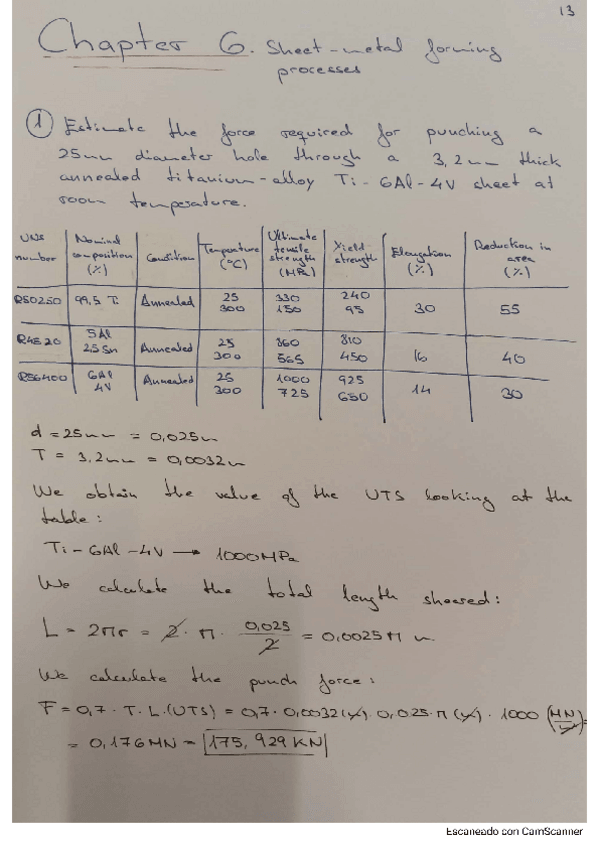 13
Chapter 6. Sheet-metal forming
processes
1 Estimate the force required for punching a
25mm diameter hole through a 3,2mm thick
annealed titanium-alloy Ti-6Al-4V sheet at
room temperature.
UNS number | Nominal composition (%) | Condition | Temperature (°C) | Ultimate tensile strength (MPa) | Yield strength | Elongation (%) | Reduction in area (%)
R50250 | 99,5 Ti | Annealed | 25 300 | 330 150 | 240 95 | 30 | 55
R4520 | 5Al 2.5Sn | Annealed | 25 300 | 860 565 | 810 450 | 16 | 40
R56400 | 6Al 4V | Annealed | 25 300 | 1000 725 | 925 650 | 14 | 30
d = 25mm = 0,025m
T = 3,2mm = 0,0032m
We obtain the value of the UTS looking at the
table:
Ti-6Al-4V → 1000MPa
We calculate the total length sheered:
L = 2πr = 2 · π · 0,025/2 = 0,0025π m.
We calculate the punch force:
F = 0,7 · T · L · (UTS) = 0,7 · 0,0032(m) · 0,025·π(m) · 1000 (MN/m²) =
= 0,176MN = 175,929KN
Escaneado con CamScanner